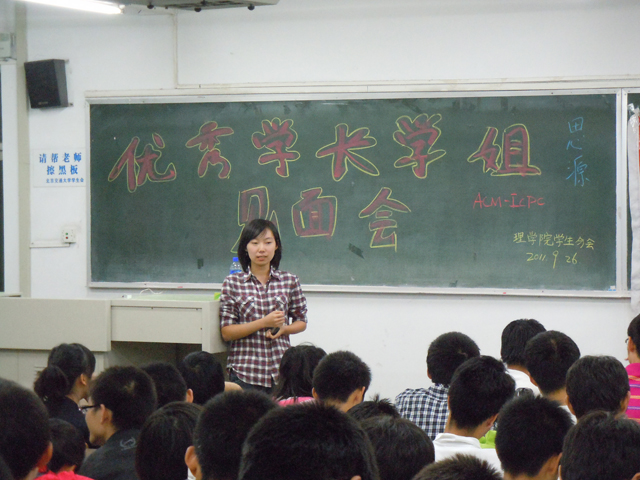 优秀学长学姐
见面会
思源
ACM-ICPC
理学院学生分会
2011.9.26
请帮老师
擦黑板